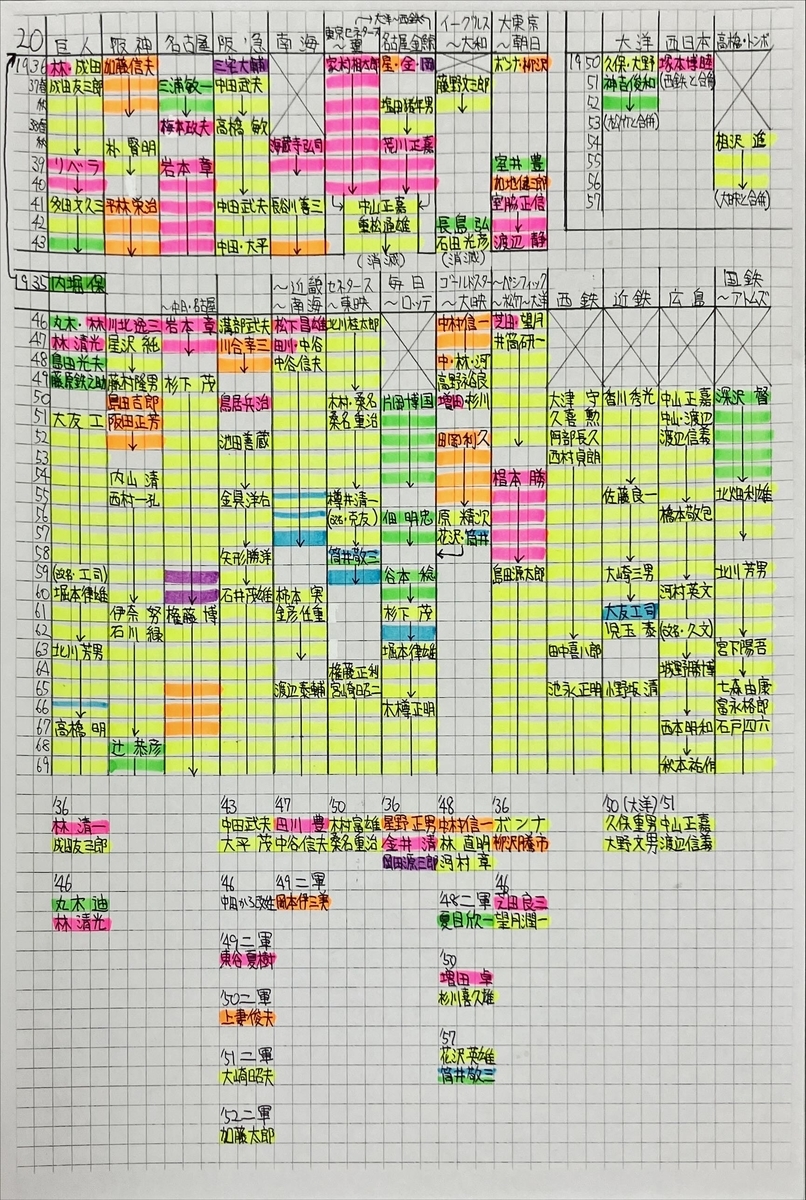 20 巨人 阪神 名古屋 阪・急 南海 東京セネタース～翼 (→大洋～西鉄) 名古屋金鯱 イーグルス～大和 大東京～朝日 大洋 西日本 高橋・トンボ
1936 林・成田 加藤信夫 三宅大輔 家村相太郎 屋・金・岡 ボンナ・柳沢 1950 久保・大野 塚本博睦
37春 成田友三郎 三浦敏一 中田武夫 藤野文三郎 51 神吉俊和 (西鉄と合併)
秋 塩田猪年男 52
38春 梅本政夫 高橋敏 53 (松竹と合併)
秋 朴賢明 海蔵寺弘司 荒川正嘉 54 相沢進
39 リベラ 岩本章 室井豊 55
40 加地健三郎 56
41 多田文久三 平林栄治 中田武夫 長谷川善三 中山正嘉 室脇正信 57 (大映と合併)
42 重松通雄 長島弘
43 中田・大平 石田光彦 渡辺静
(消滅) (消滅)
1935 内堀保 ～中日・名古屋 ～近畿～南海 セネタース～東映 毎日～ロッテ ゴールドスター～大映 ～パシフィック～松竹～大洋 西鉄 近鉄 広島 国鉄～アトムズ
46 丸木・林 川北逸三 岩本章 溝部武夫 松下昌雄 北川桂太郎 中村信一 芝田・望月
47 林清光 星沢純 川合幸三 田川・中谷 井筒研一
48 島田光夫 中谷信夫 中・林・河
49 藤原鉄之助 藤村隆男 杉下茂 高野裕良
50 島田吉郎 鳥居兵治 木村・桑名 片岡博国 増田・杉川 大津守 香川秀光 中山正嘉 深沢督
51 大友工 阪田正芳 桑名重治 久喜勲 中山・渡辺
52 池田善蔵 田岡利久 阿部長久 渡辺信義
53 西村貞朗
54 内山清 椙本勝
55 西村一孔 金具洋右 樽井清一 佐藤良一 北畑利雄
56 (改名・克友) 佃明忠 原精次 橋本敬包
57 花沢・筒井
58 矢形勝洋 筒井敬三
59 (改名・工司) 谷本稔 島田源太郎 大崎三男 北川芳男
60 堀本律雄 石井茂雄 柿本実 河村英文
61 伊奈努 権藤博 金彦任重 杉下茂 大友工司
62 石川緑 児玉泰 (改名・久文)
63 北川芳男 堀本律雄 田中喜八郎 宮下陽吾
64 権藤正利 城野勝博
65 渡辺泰輔 宮崎昭二 池永正明 小野坂清 七森由康
66 木樽正明 富永格郎
67 高橋明 西本明和 石戸四六
68 辻恭彦
69 秋本祐作
'36 '43 '47 '50 '36 '48 '36 '50(大洋) '51
林清一 中田武夫 田川豊 木村富雄 星野正男 中村信一 ボンナ 久保重男 中山正嘉
成田友三郎 大平茂 中谷信夫 桑名重治 金井清 林直明 柳沢騰市 大野文男 渡辺信義
岡田源三郎 河村章
'46 '46 '49二軍 '48二軍 '46
丸木迪 中田から改姓 岡本伊三美 夏目欣一 芝田良三
林清光 望月潤一
'49二軍 '50
東谷夏樹 増田卓
杉川喜久雄
'50二軍
上妻俊夫 '57
'51二軍 花沢英雄
大崎昭夫 筒井敬三
'52二軍
加藤太郎